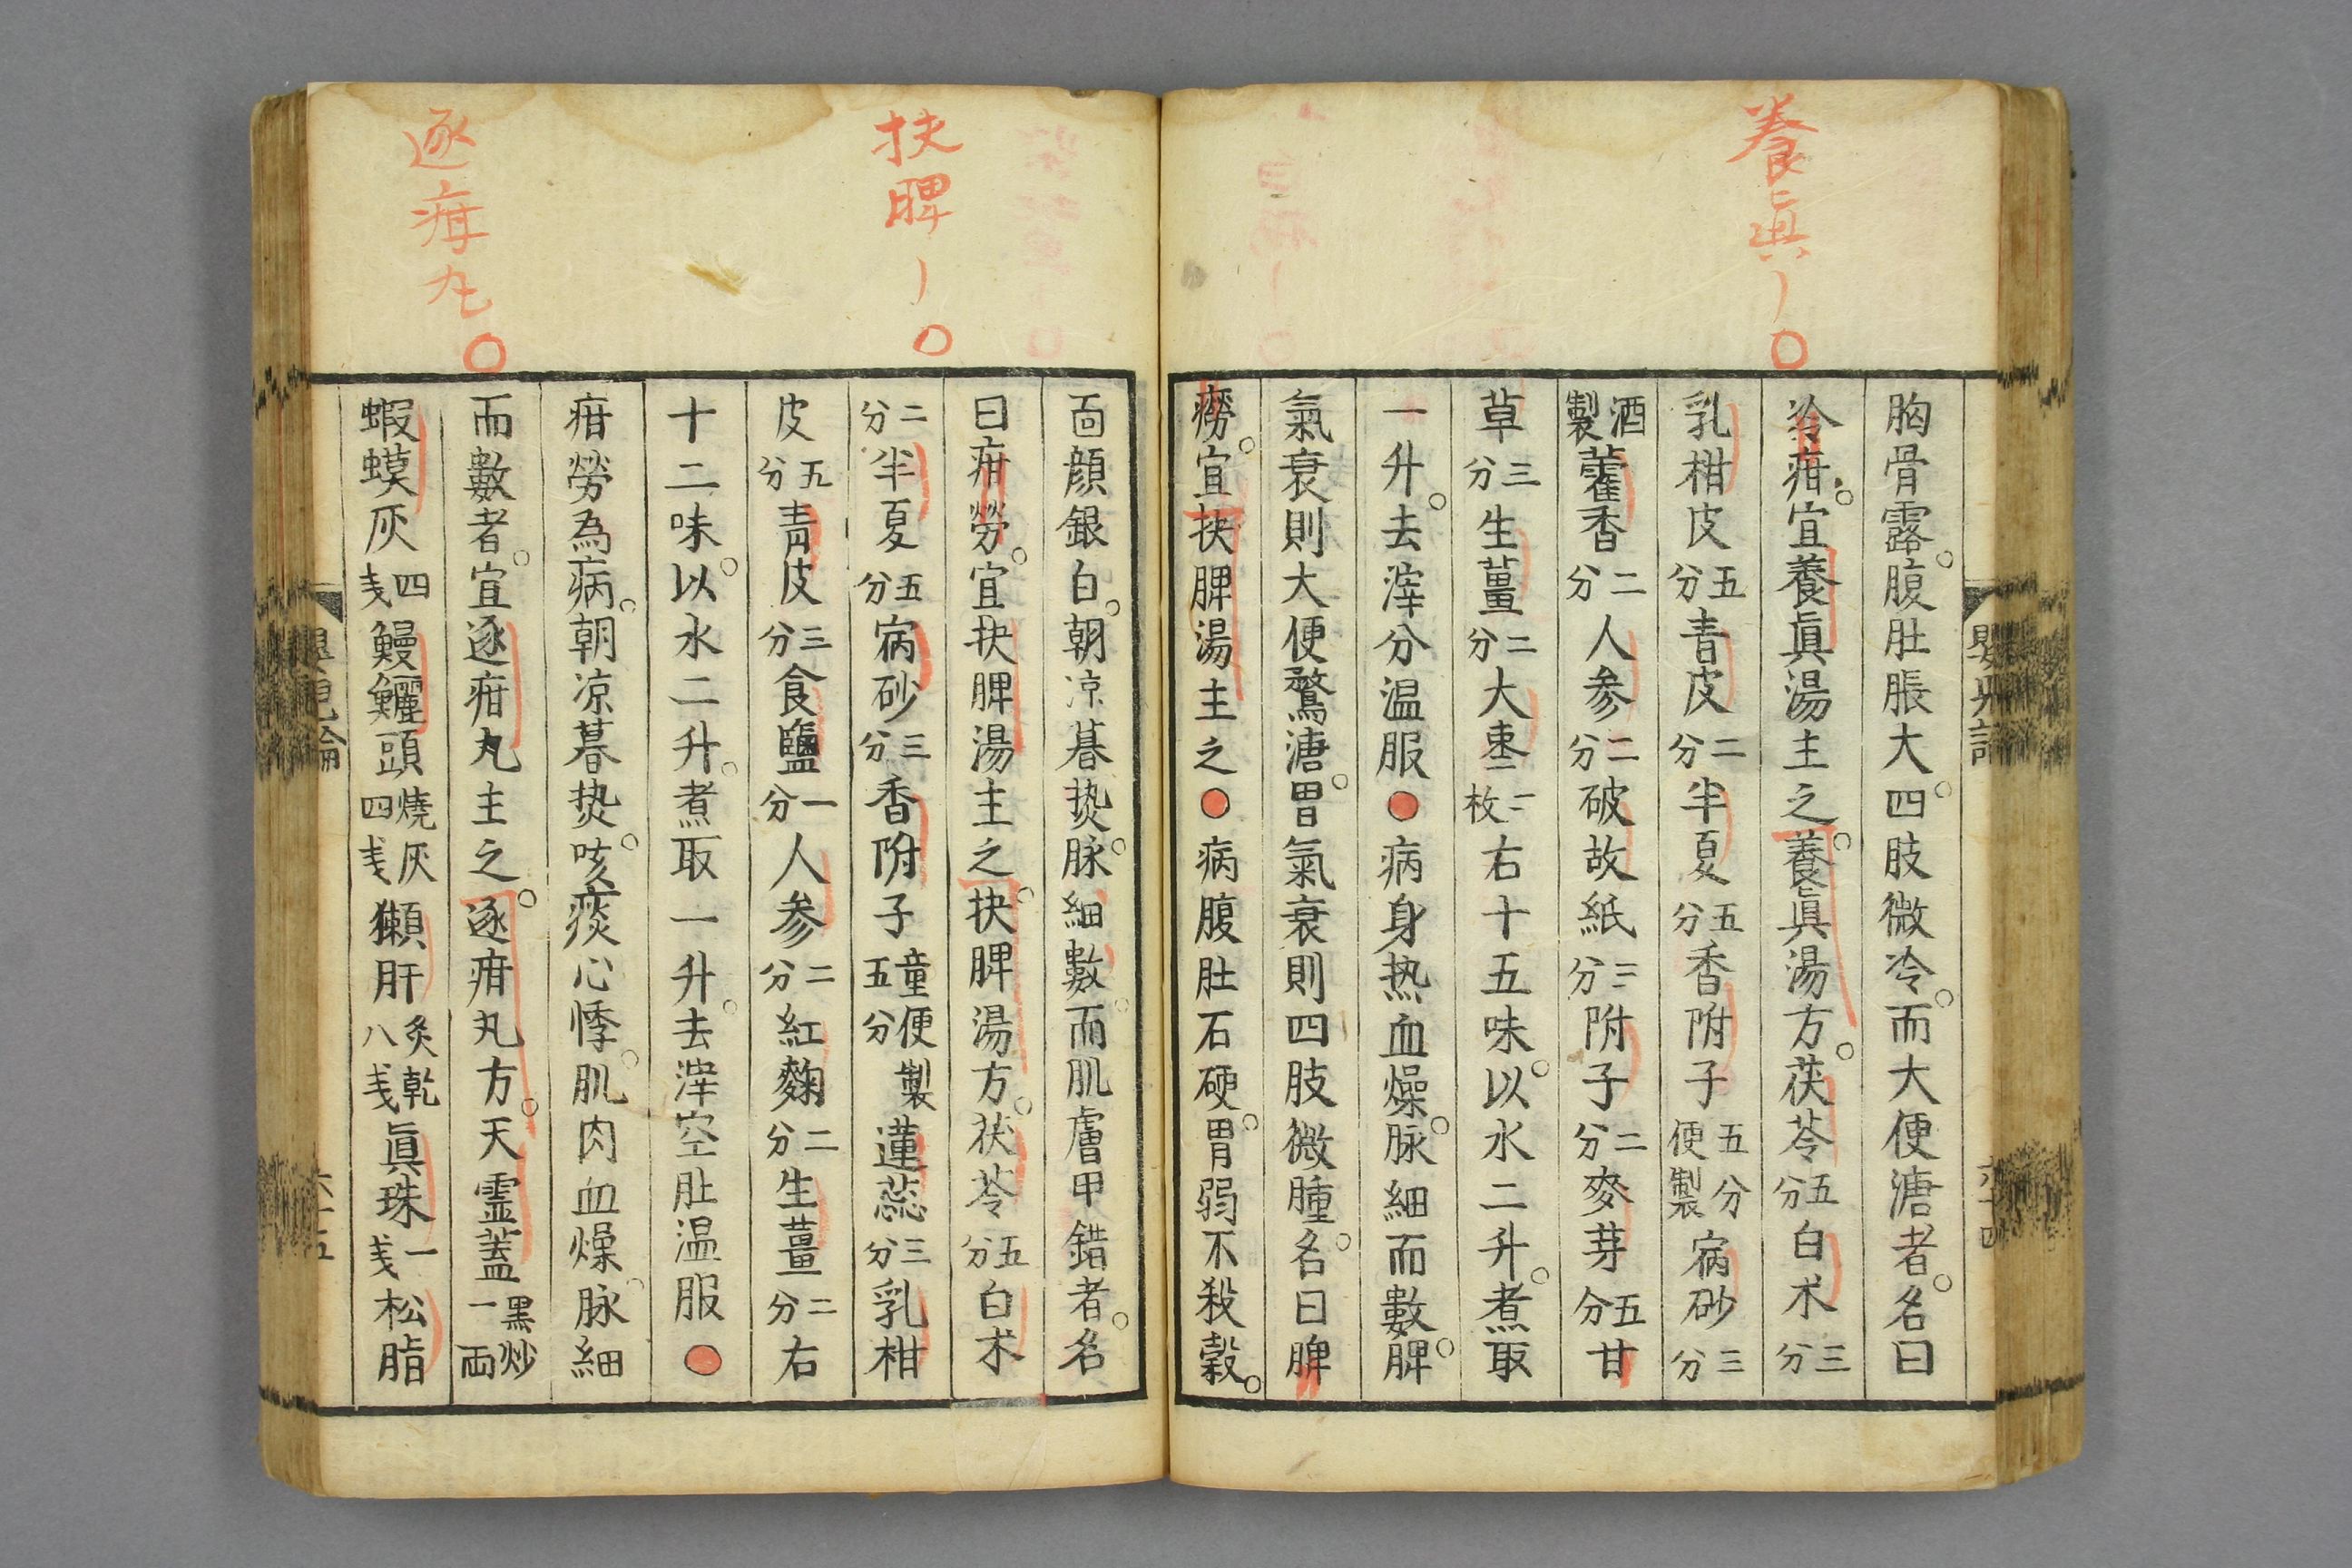 養眞〡〇
胸骨露。腹肚脹大。四肢微冷。而大便溏者。名曰
冷疳。宜養眞湯主之。養眞湯方。茯苓五分白朮三分
乳柑皮五分青皮二分半夏五分香附子五分便製宿砂三分
酒製藿香二分人參二分破故紙三分附子二分麥芽五分甘
草三分生薑二分大棗二枚右十五味。以水二升。煮取
一升。去滓分温服●病身热血燥。脉細而數。脾
氣衰則大便鶩溏。胃氣衰則四肢微腫。名曰脾
癆。宜扶脾湯主之●病腹肚石硬。胃弱不殺穀。
扶脾〡〇
逐疳丸〇
面顔銀白。朝凉暮热。脉細數。而肌膚甲錯者。名
曰疳勞。宜扶脾湯主之。扶脾湯方。茯苓五分白朮
二分半夏五分宿砂三分香附子童便製五分蓮蕊三分乳柑
皮五分青皮三分食鹽一分人參二分紅麴二分生薑二分右
十二味。以水二升。煮取一升。去滓空肚温服●
疳勞為病。朝凉暮热。咳痰心悸。肌肉血燥。脉細
而數者。宜逐疳丸主之。逐疳丸方。天霊蓋黑炒一両
蝦蟆灰四戔鰻鱺頭燒灰四戔獺肝炙乾八戔眞珠一戔松脂
六十五